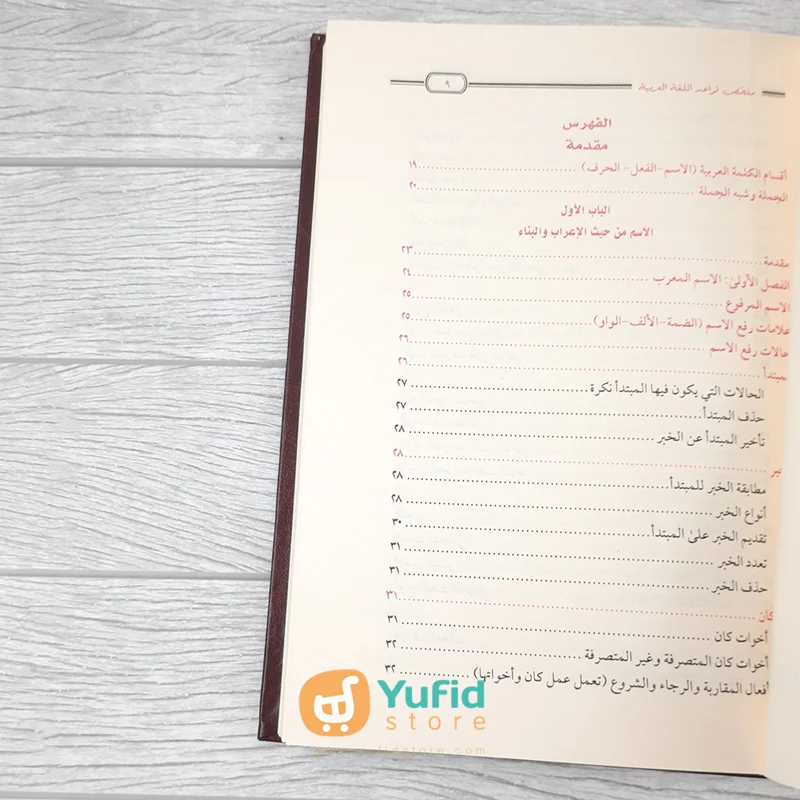 ملخص قواعد اللغة العربية ٩
الفهرس
مقدمة
أقسام الكلمة العربية (الاسم-الفعل- الحرف) ١٩
الجملة وشبه الجملة ٢٠
الباب الأول
الاسم من حيث الإعراب والبناء
مقدمة ٢٣
الفصل الأولىٰ: الاسم المعرب ٢٤
الاسم المرفوع ٢٥
علامات رفع الاسم (الضمة-الألف-الواو) ٢٥
حالات رفع الاسم ٢٦
مبتدأ ٢٦
الحالات التي يكون فيها المبتدأ نكرة ٢٧
حذف المبتدأ ٢٧
تأخير المبتدأ عن الخبر ٢٨
خبر ٢٨
مطابقة الخبر للمبتدأ ٢٨
أنواع الخبر ٢٨
تقديم الخبر علىٰ المبتدأ ٣٠
تعدد الخبر ٣١
حذف الخبر ٣١
كان ٣١
أخوات كان ٣١
أخوات كان المتصرفة وغير المتصرفة ٣٢
أفعال المقاربة والرجاء والشروع (تعمل عمل كان وأخواتها) ٣٢
Yufid
store
www.yufidstore.com